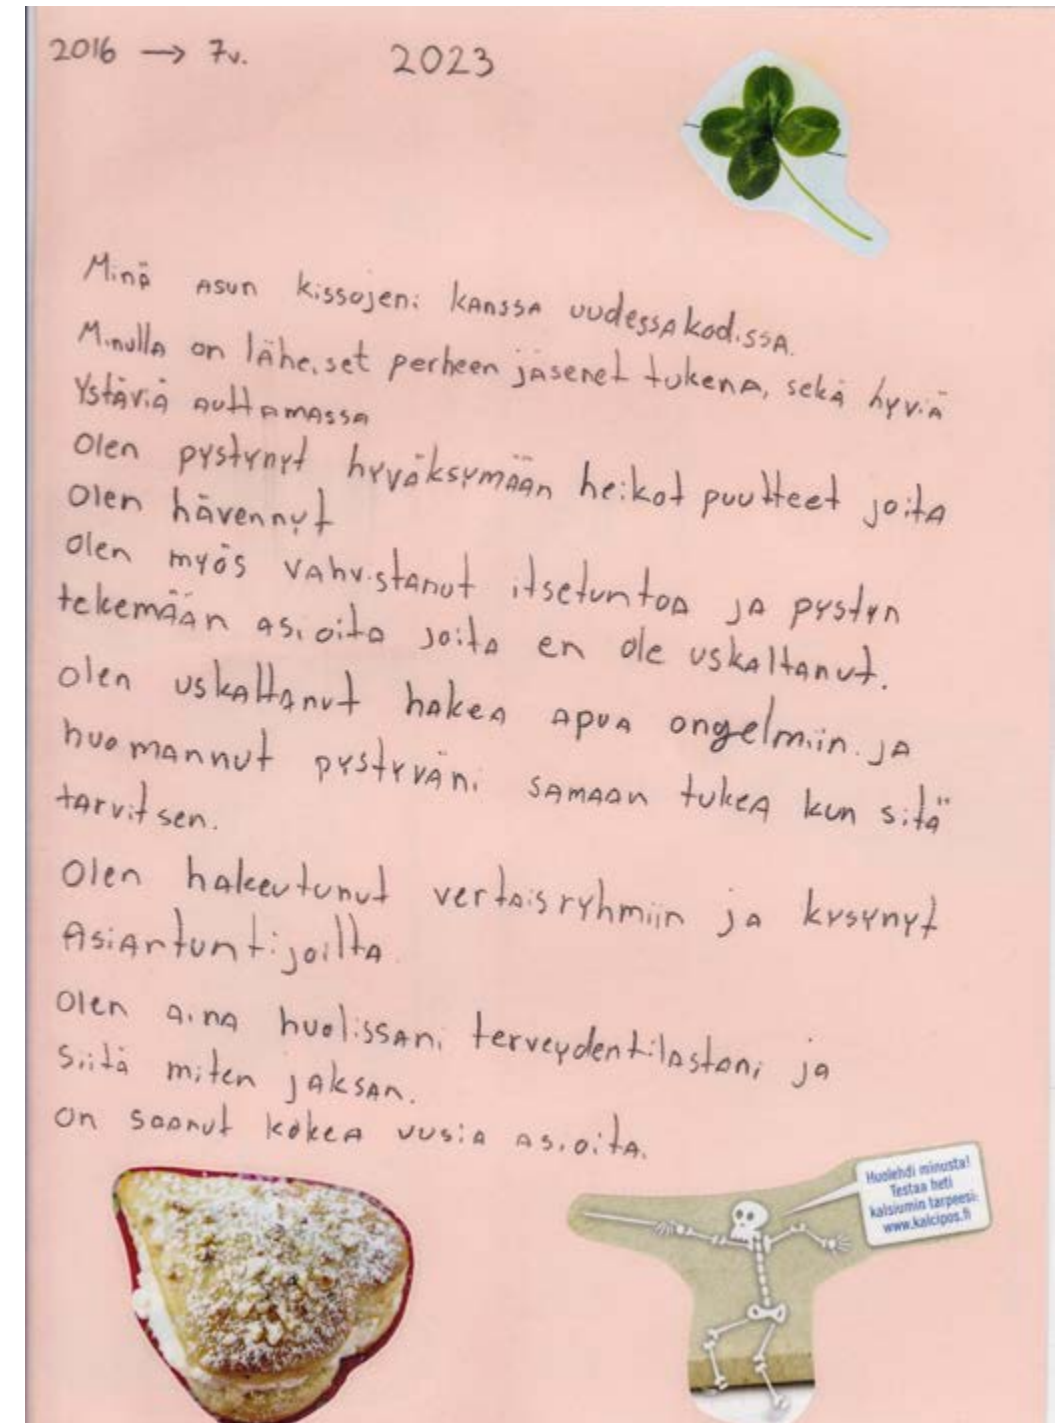 2016 → 7v. 2023
Minä asun kissojeni kanssa uudessa kodissa.
Minulla on läheiset perheen jäsenet tukena, sekä hyviä
Ystäviä auttamassa
Olen pystynyt hyväksymään heikot puutteet joita
Olen hävennyt
Olen myös vahvistanut itsetuntoa ja pystyn
tekemään asioita joita en ole uskaltanut.
Olen uskaltanut hakea apua ongelmiin ja
huomannut pystyväni samaan tukea kun sitä
tarvitsen.
Olen hakeutunut vertaisryhmiin ja kysynyt
Asiantuntijoilta.
Olen aina huolissani terveydentilastani ja
Siitä miten jaksan.
On saanut kokea uusia asioita.
Huolehdi minusta!
Testaa heti
kalsiumin tarpeesi:
www.kalcipos.fi